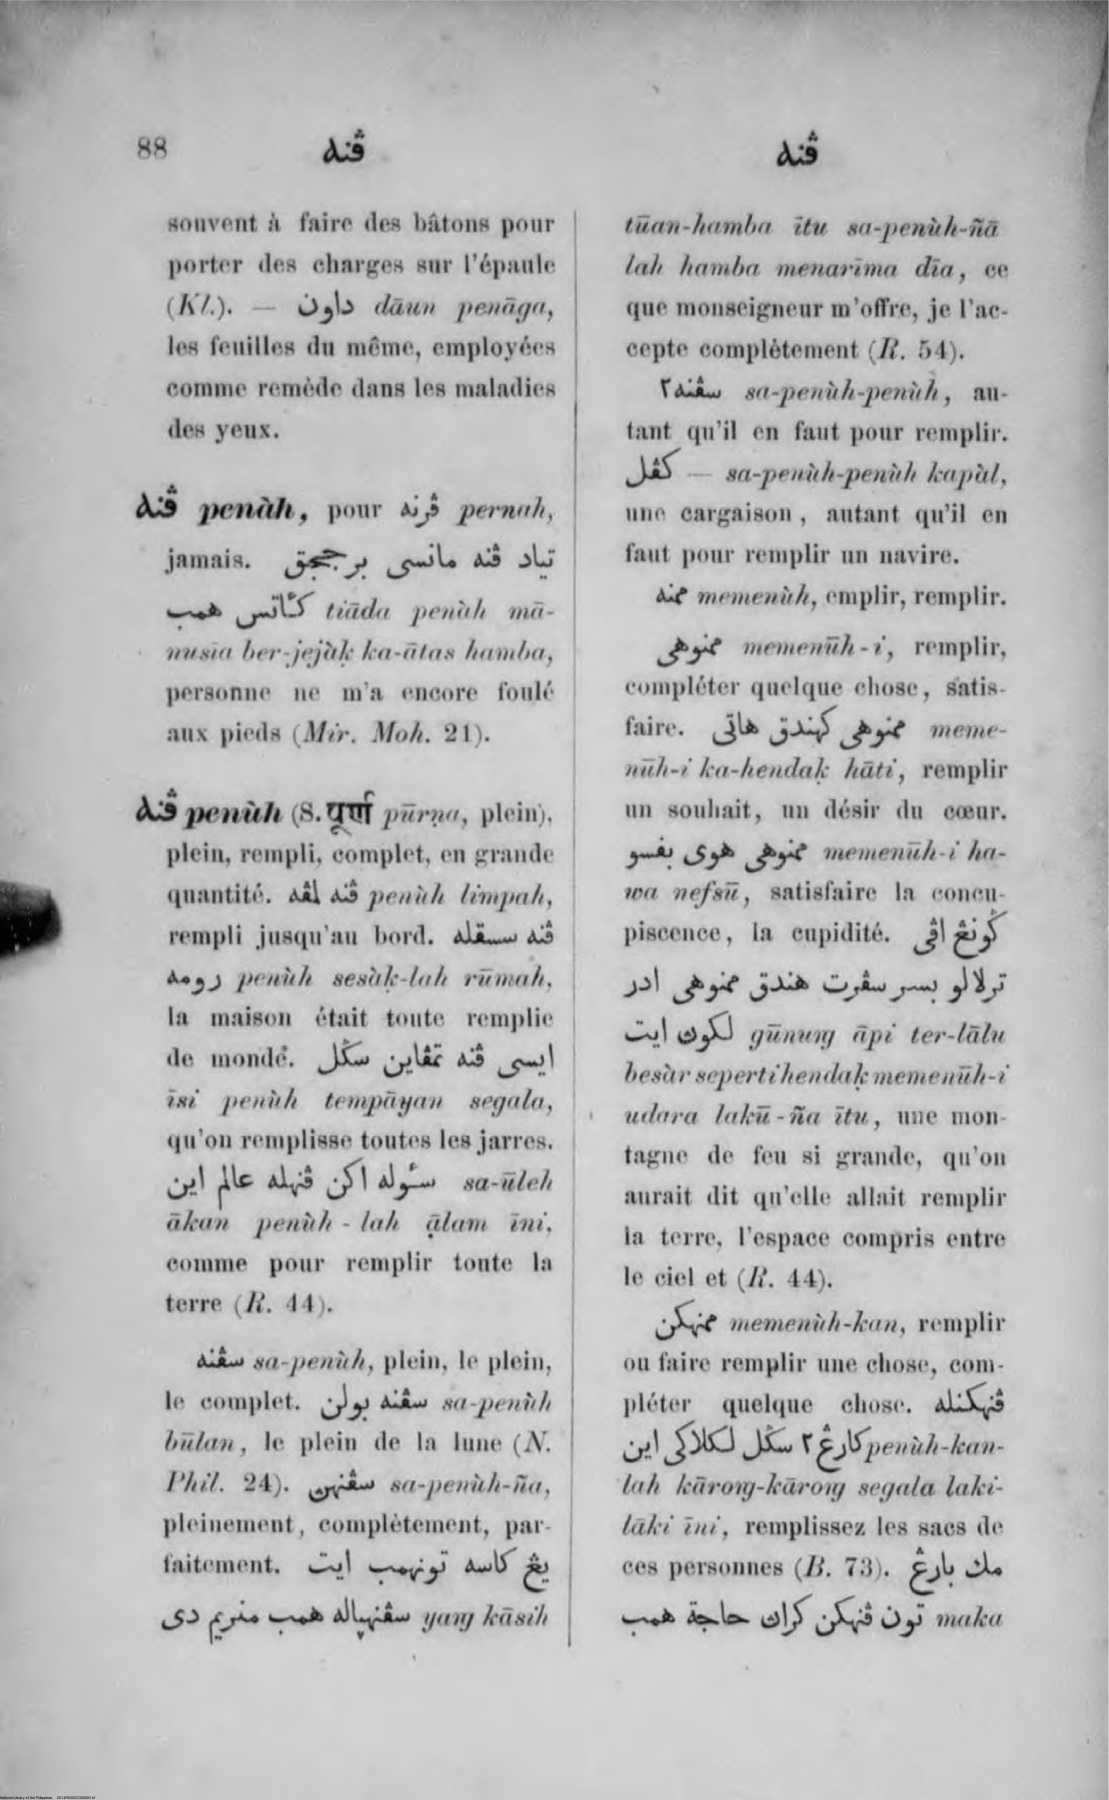 88 ڤنه ڤنه
souvent à faire des bâtons pour
porter des charges sur l'épaule
(Kl.). — داون dāun penāga,
les feuilles du même, employées
comme remède dans les maladies
des yeux.
ڤنه penàh, pour ڤرنه pernah,
jamais. تياد ڤنه مانسى برججق
كئاتس همب tiāda penàh mā-
nusīa ber-jejàḳ ka-ātas hamba,
personne ne m'a encore foulé
aux pieds (Mir. Moh. 21).
ڤنه penùh (S. पूर्ण pūrṇa, plein),
plein, rempli, complet, en grande
quantité. ڤنه لمڤه penùh limpah,
rempli jusqu'au bord. ڤنه سسقله
رومه penùh sesàḳ-lah rūmah,
la maison était toute remplie
de monde. ايسى ڤنه تمڤاين سݢل
īsi penùh tempāyan segala,
qu'on remplisse toutes les jarres.
سئوله اكن ڤنهله عالم اين sa-ūleh
ākan penùh-lah ạ̄lam īni,
comme pour remplir toute la
terre (R. 44).
سڤنه sa-penùh, plein, le plein,
le complet. سڤنه بولن sa-penùh
būlan, le plein de la lune (N.
Phil. 24). سڤنهن sa-penùh-ña,
pleinement, complètement, par-
faitement. يڠ كاسه تونهمب ايت
سڤنهڽاله همب منريم دى yaṅg kāsih
tūan-hamba ītu sa-penùh-ñā
lah hamba menarīma dīa, ce
que monseigneur m'offre, je l'ac-
cepte complètement (R. 54).
سڤنه٢ sa-penùh-penùh, au-
tant qu'il en faut pour remplir.
كڤل — sa-penùh-penùh kapàl,
une cargaison, autant qu'il en
faut pour remplir un navire.
ممنه memenùh, emplir, remplir.
ممنوهى memenūh-i, remplir,
compléter quelque chose, satis-
faire. ممنوهى كهندق هاتى meme-
nūh-i ka-hendaḳ hāti, remplir
un souhait, un désir du cœur.
ممنوهى هوى نفسو memenūh-i ha-
wa nefsū, satisfaire la concu-
piscence, la cupidité. ݢونڠ اڤى
ترلالو بسر سڤرت هندق ممنوهى ادر
لكون ايت gūnuṅg āpi ter-lālu
besàr seperti hendaḳ memenūh-i
udara lakū-ña ītu, une mon-
tagne de feu si grande, qu'on
aurait dit qu'elle allait remplir
la terre, l'espace compris entre
le ciel et (R. 44).
ممنهكن memenùh-kan, remplir
ou faire remplir une chose, com-
pléter quelque chose. ڤنهكنله
كارڠ٢ سݢل لكلاكى اين penùh-kan-
lah kāroṅg-kāroṅg segala laki-
lāki īni, remplissez les sacs de
ces personnes (B. 73). مك بارڠ
تون ڤنهكن كران حاجة همب maka